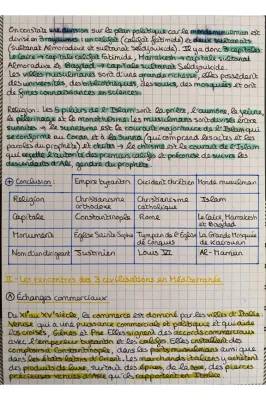 On constate une division sur le plan politique car le monde musulman est
divisé en 3 royaumes : un califat (califat fatimide) et deux sultanats
(sultanat Almoravide et sultanat Seldjoukide). Il y a donc 3 capitales
Le Caire → capitale califat fatimide, Marrakech → capitale sultanat
Almoravide et Bagdad → capitale sultanat Seldjoukide.
Les villes musulmanes sont d'une grande richesse, elles possèdent
des universités, des bibliothèques, des souks, des mosquées et ont
de fines connaissances en sciences.
Religion : Les 5 piliers de l'Islam sont la prière, l'aumône, le jeûne,
le pèlerinage et le monothéisme. Les musulmans sont divisés entre
sunnites → le sunnisme est le courant majoritaire de l'Islam qui
se conforme au Coran, et à la Sunna, (qui comprend les actes et les
paroles du prophète) et chiites → le chiisme est le courant de l'Islam
qui rejette l'autorité des premiers califes et préconise de suivre les
descendants d'Ali, gendre du prophète.
Conclusion : Empire byzantin Occident chrétien Monde musulman
Religion Christianisme orthodoxe Christianisme catholique Islam
Capitale Constantinople Rome Le Caire, Marrakesh et Bagdad
Monument Eglise Sainte Sophie Tympan de l'Eglise de Conques La Grande Mosquée de Kairouan
Nom d'un dirigeant Justinien Louis VI Al-Mamun
II - Les rencontres des 3 civilisations en Méditerranée
A Echanges commerciaux
Du XIe au XVe siècle, le commerce est dominé par les villes d'Italie
Venise qui a une puissance commerciale et politique et qui aide
les croisés, Gênes et Pise. Elles signent des accords commerciaux
avec l'empereur byzantin et les califes. Elles installent des
comptoirs Constantinople, dans les ports musulmans ainsi que
dans les états latins d'Orient. Les marchands italiens y achètent
des produits de luxe, surtout des épices, de la soie, des pierres
précieuses venues d'Asie qu'ils rapportent en Italie.